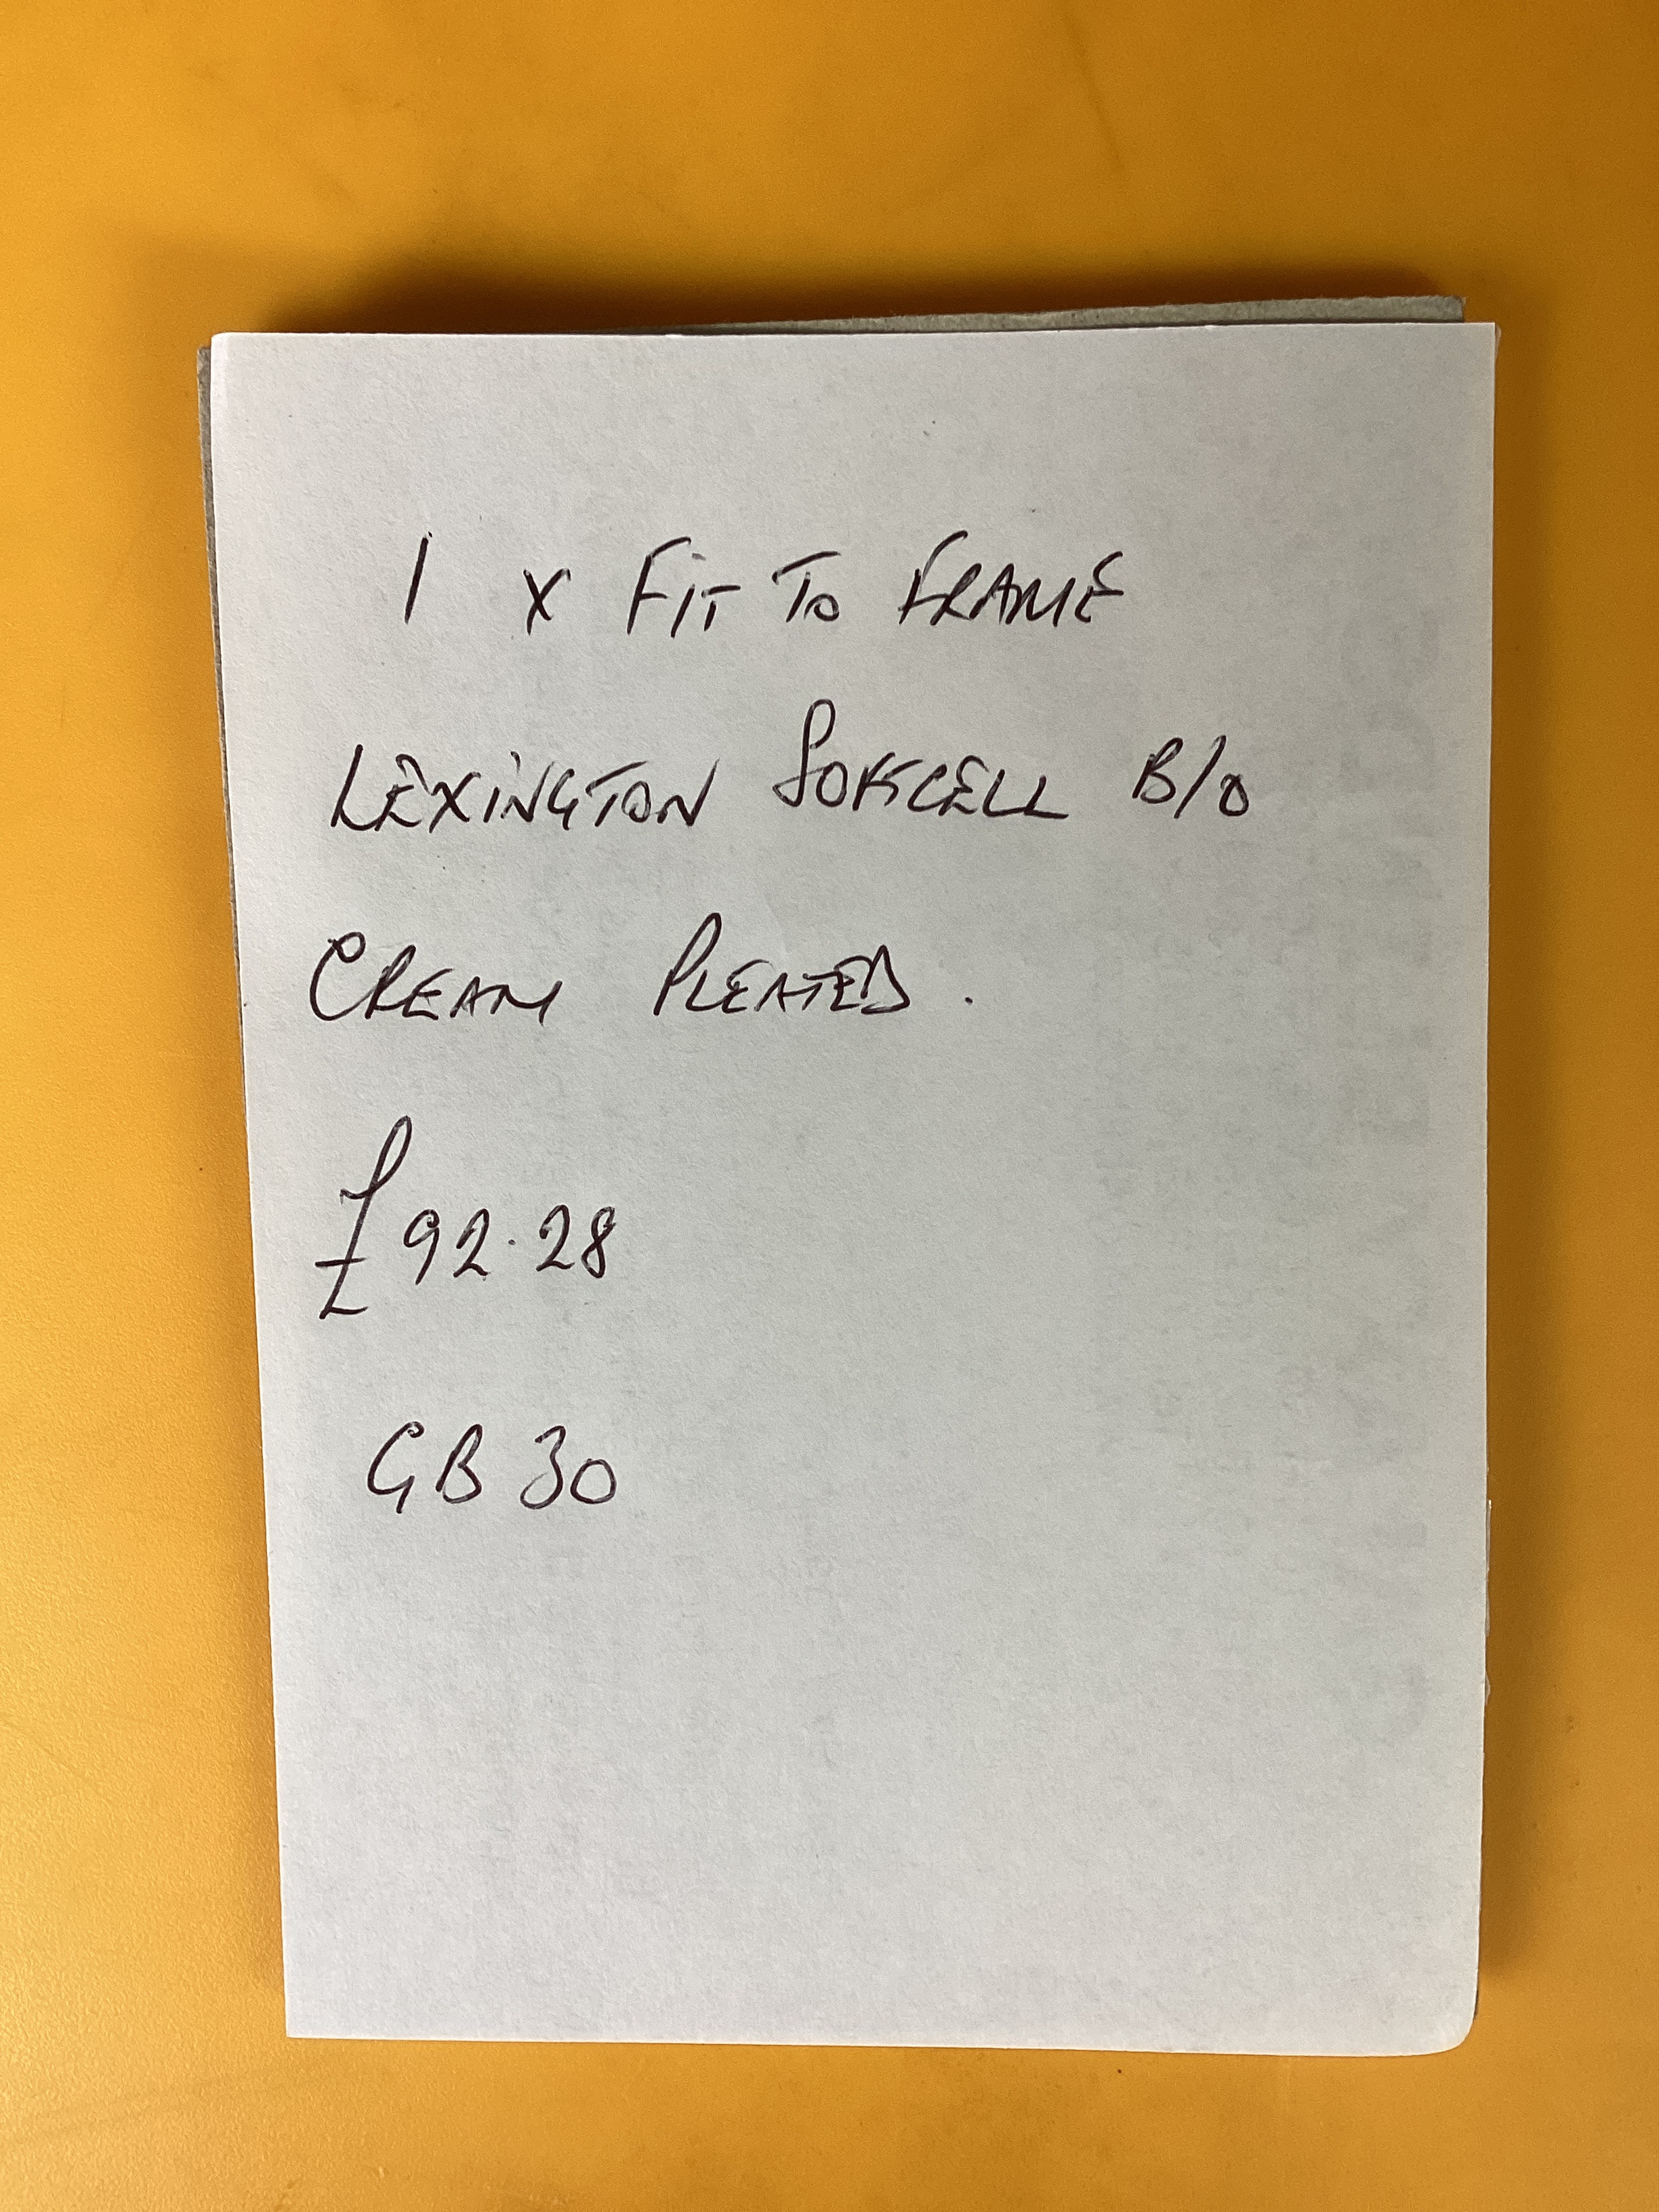 1 x FiT To FRAME
LEXiNGTON SOFTCELL B/O
CREAM PLEATED.
£92.28
GB 30